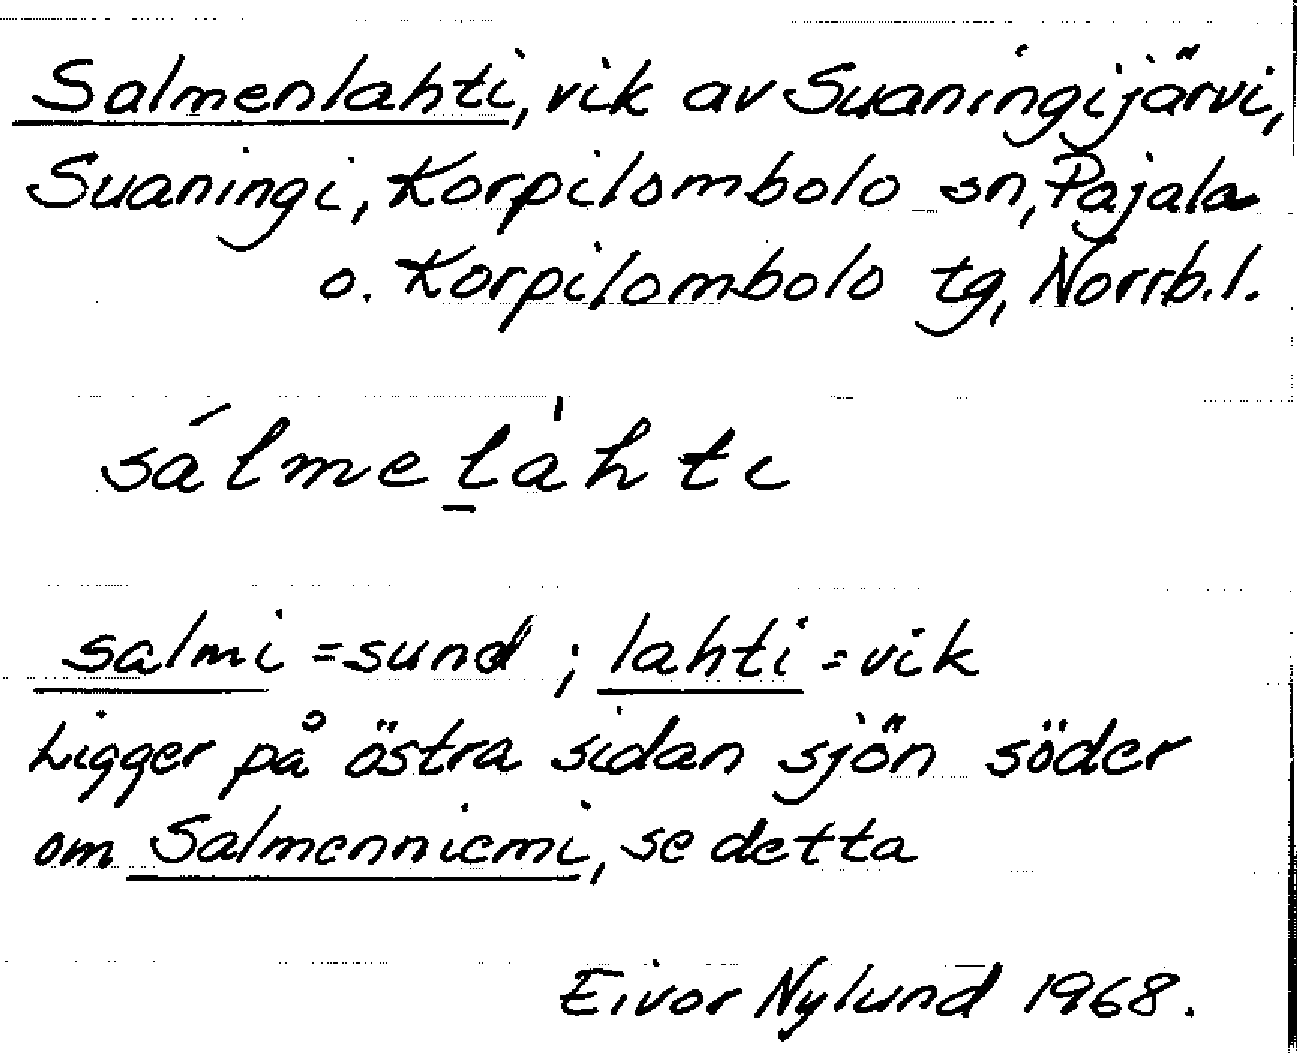 Salmenlahti, vik av Suaningijärvi,
Suaningi, Korpilombolo sn, Pajala
o. Korpilombolo tg, Norrb.l.
sálmelˈahti
salmi = sund ; lahti = vik
Ligger på östra sidan sjön söder
om Salmenniemi, se detta
Eivor Nylund 1968.